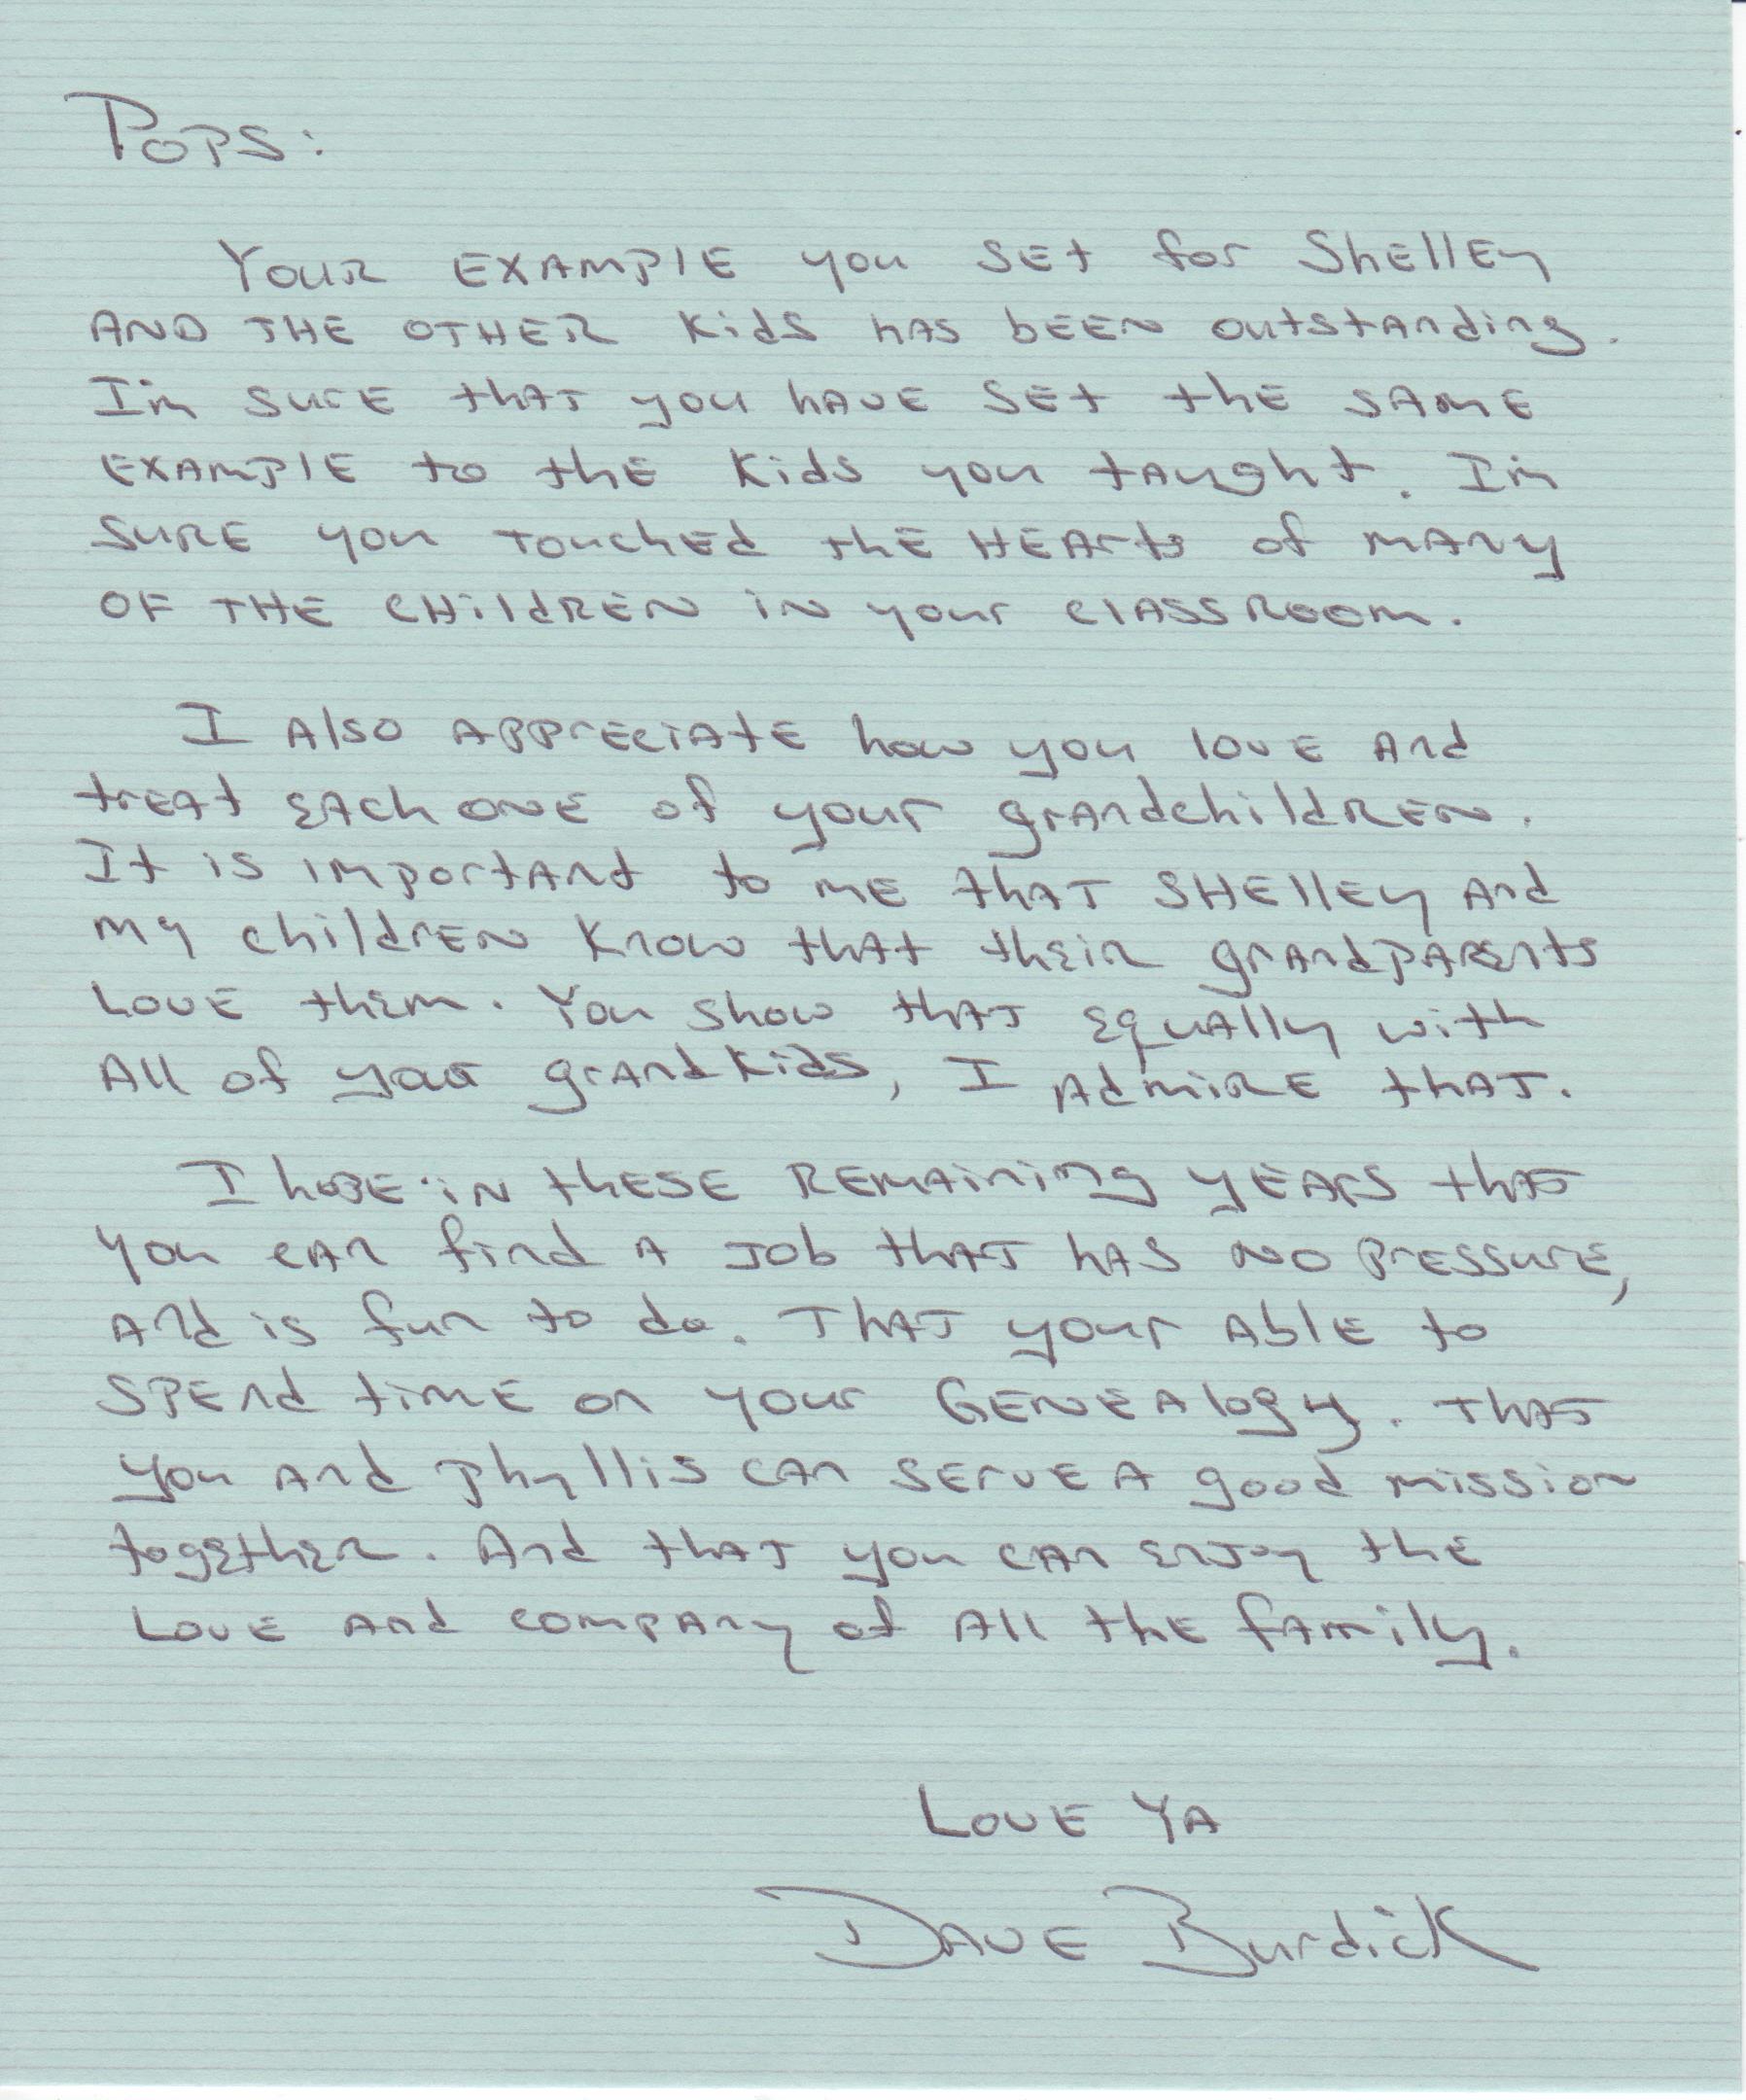 Pops:
Your example you set for Shelley
and the other kids has been outstanding.
I'm sure that you have set the same
example to the kids you taught. I'm
sure you touched the hearts of many
of the children in your classroom.
I also appreciate how you love and
treat each one of your grandchildren.
It is important to me that Shelley and
my children know that their grandparents
love them. You show that equally with
all of your grandkids, I admire that.
I hope in these remaining years that
you can find a job that has no pressure,
and is fun to do. That your able to
spend time on your Genealogy. That
you and Phyllis can serve a good mission
together. And that you can enjoy the
love and company of all the family.
Love Ya
Dave Burdick